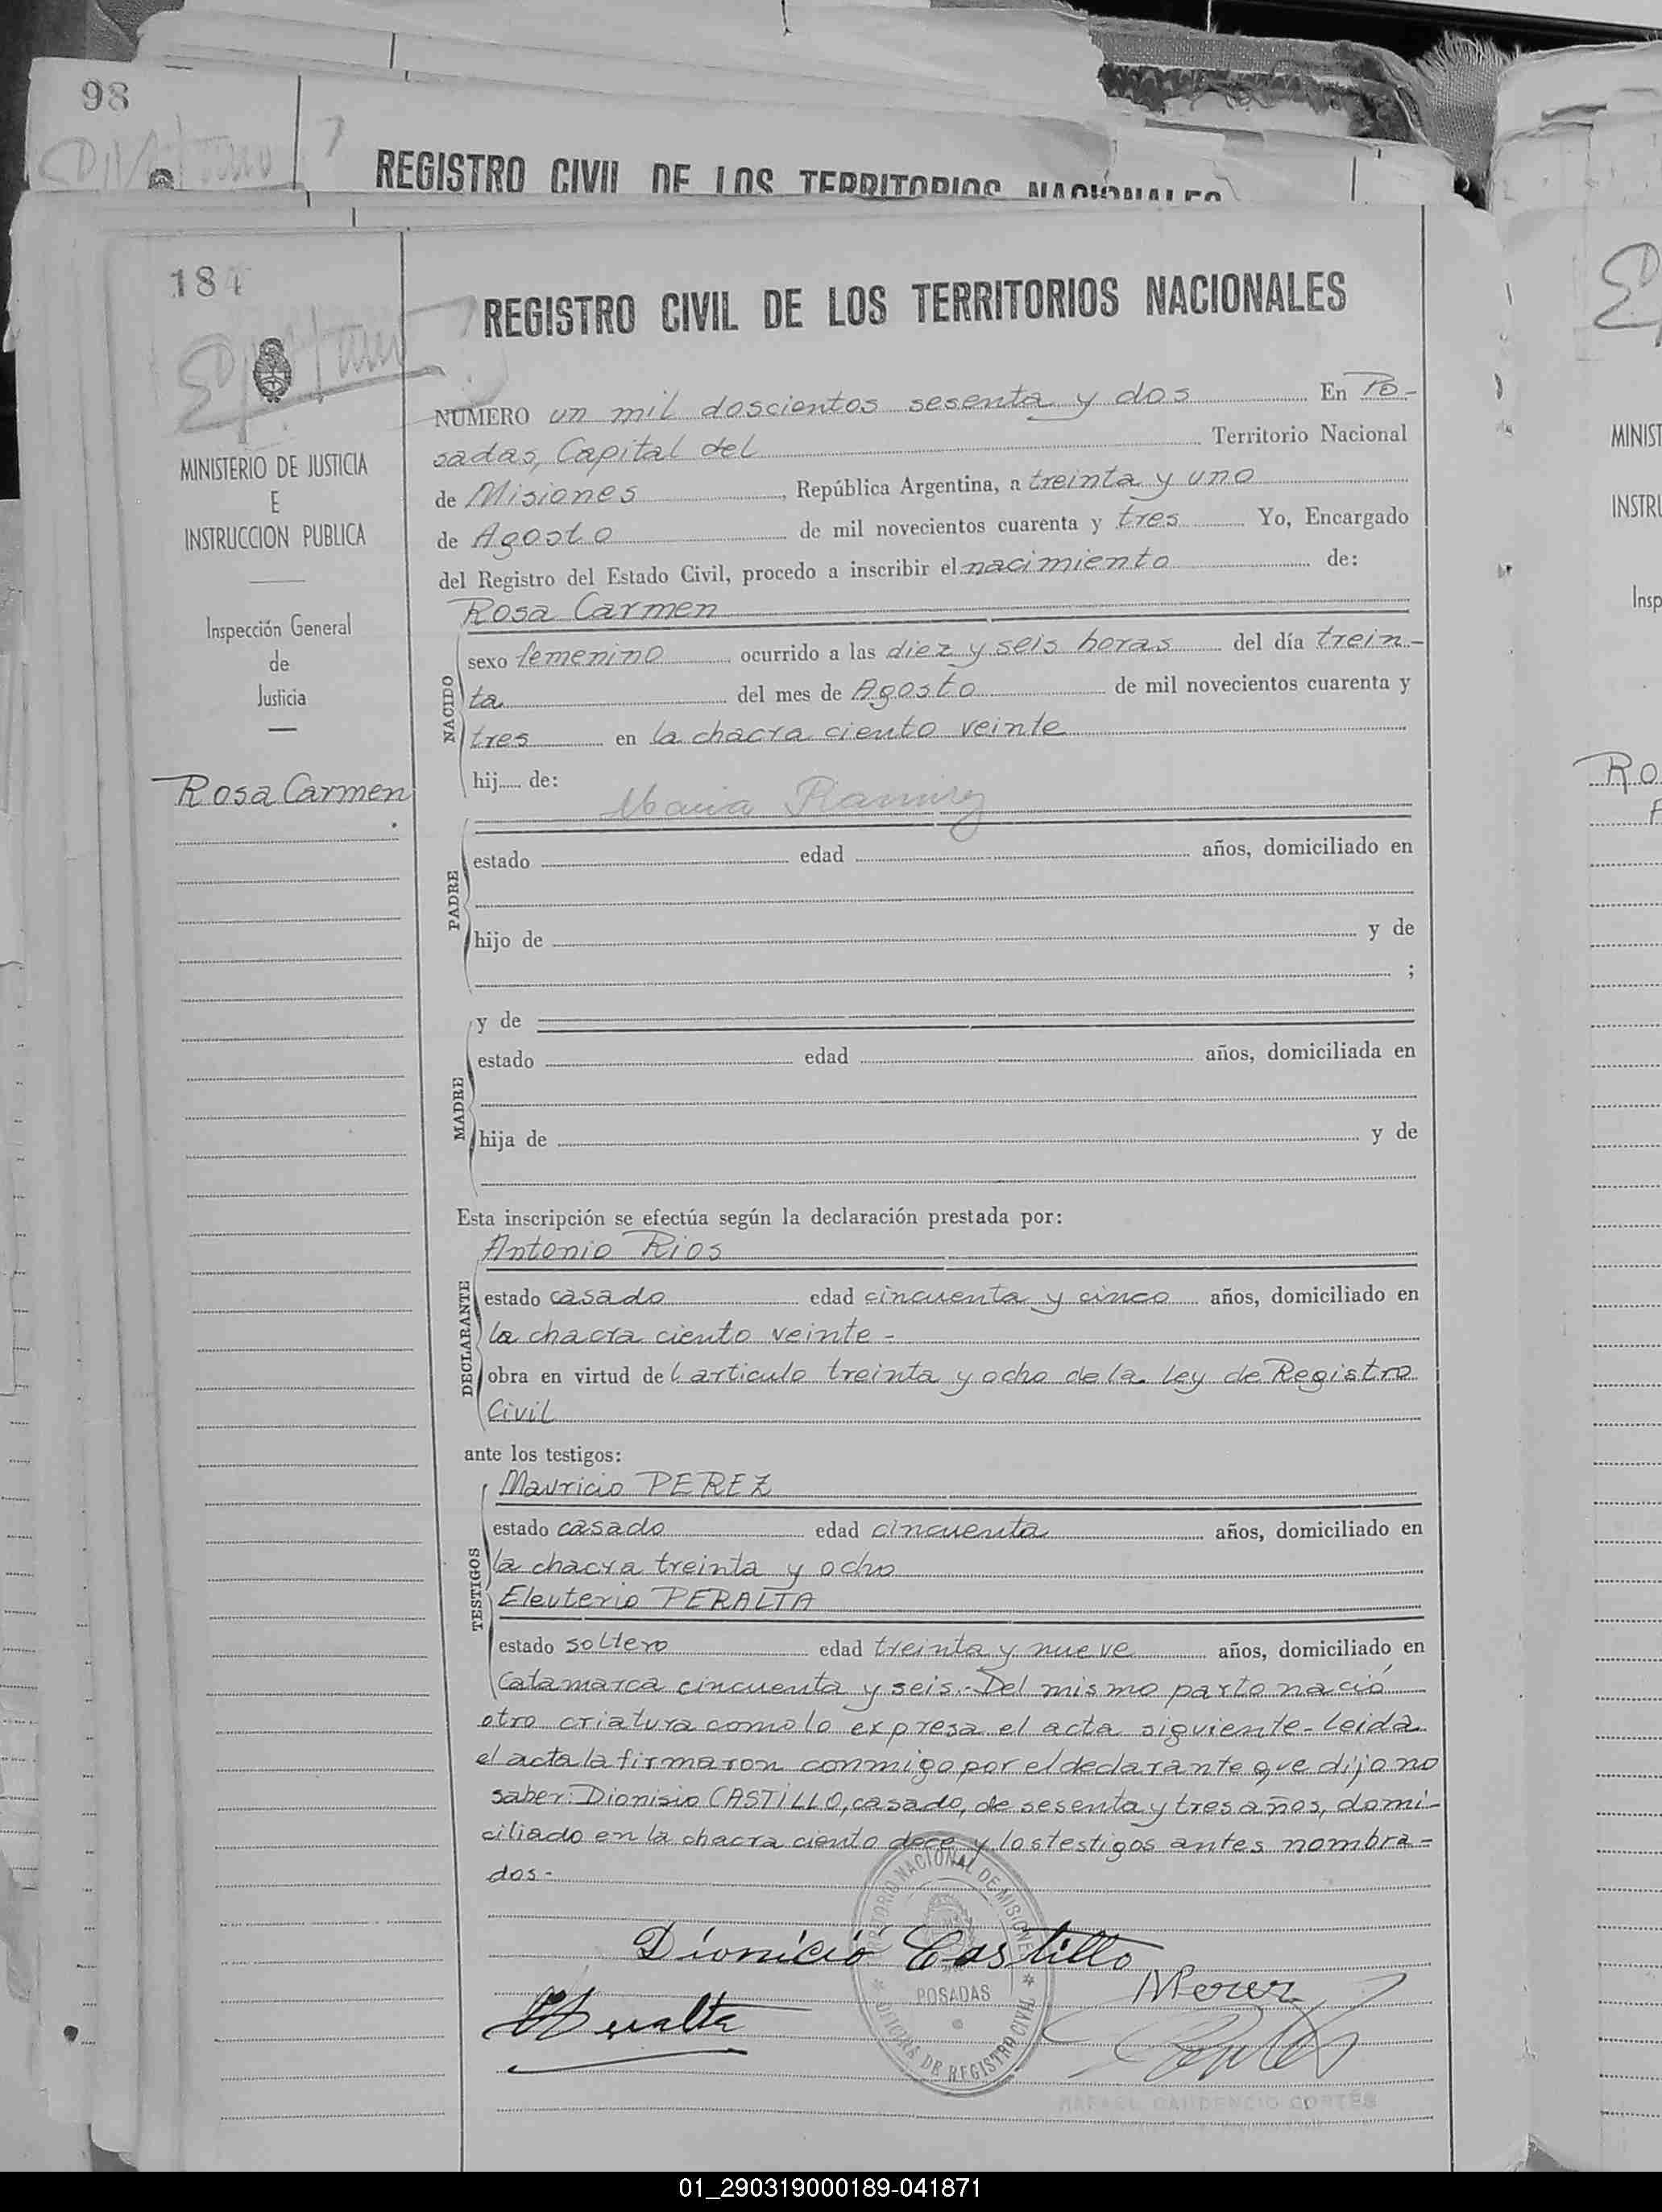 98
REGISTRO CIVIL DE LOS TERRITORIOS NACIONALES
184
REGISTRO CIVIL DE LOS TERRITORIOS NACIONALES
MINISTERIO DE JUSTICIA
E
INSTRUCCION PUBLICA
Inspección General
de
Justicia
Rosa Carmen
NÚMERO un mil doscientos sesenta y dos En Po-
sadas, Capital del Territorio Nacional
de Misiones, República Argentina, a treinta y uno
de Agosto de mil novecientos cuarenta y tres Yo, Encargado
del Registro del Estado Civil, procedo a inscribir el nacimiento de:
Rosa Carmen
NACIDO
sexo femenino ocurrido a las diez y seis horas del día trein-
ta del mes de Agosto de mil novecientos cuarenta y
tres en la chacra ciento veinte
hij de:
Maria Ramirez
PADRE
estado edad años, domiciliado en
hijo de y de
;
MADRE
y de
estado edad años, domiciliada en
hija de y de
Esta inscripción se efectúa según la declaración prestada por:
DECLARANTE
Antonio Rios
estado casado edad cincuenta y cinco años, domiciliado en
la chacra ciento veinte -
obra en virtud del articulo treinta y ocho de la ley de Registro
Civil
ante los testigos:
TESTIGOS
Mauricio PEREZ
estado casado edad cincuenta años, domiciliado en
la chacra treinta y ocho
Eleuterio PERALTA
estado soltero edad treinta y nueve años, domiciliado en
Catamarca cincuenta y seis.- Del mismo parto nació
otro criatura como lo expresa el acta siguiente- leida
el acta la firmaron conmigo por el declarante que dijo no
saber: Dionisio CASTILLO, casado, de sesenta y tres años, domi-
ciliado en la chacra ciento doce y los testigos antes nombra-
dos-
Dionicio Castillo
MPerez
Peralta
TERRITORIO NACIONAL DE MISIONES
POSADAS
OFICINA DE REGISTRO CIVIL
RAFAEL GAUDENCIO CORTÉS
MINIST
INSTRU
Insp
Ro
01_290319000189-041871